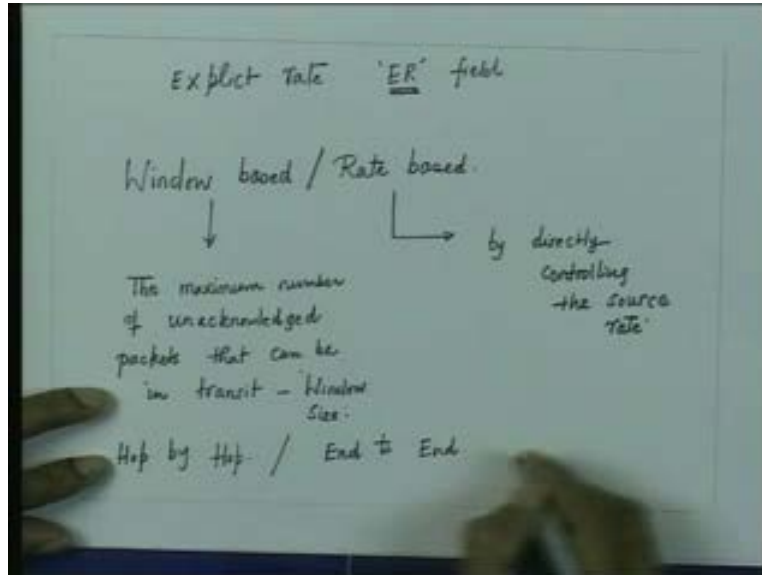 Explict rate 'ER' field
Window based / Rate based.
The maximum number
of unacknowledged
packets that can be
in transit - Window
Size.
by directly
controlling
the source
rate.
Hop by Hop. / End to End